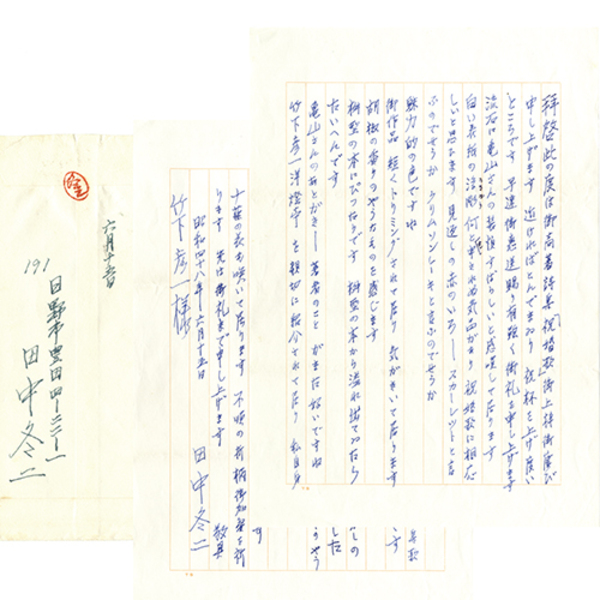 拝啓此の度は御高著詩集「祝婚歌」御上梓御慶び
申し上げます 近ければとんでまゐり 祝杯を上げ度い
ところです 早速御恵送賜り有難く御礼を申し上げます
流石に亀山さんの装幀すばらしいと感嘆して居ります
白い表紙の
何と
気品があり 祝婚歌に相応
しいと思ひます 見返しの赤のいろ―スカーレットと言
ふのでせうか クリムソンレーキと言ふのでせうか
魅力的の色ですね
御作品 短くトリミングされて居り 気がきいて居ります
胡椒の香りのやうなものを感じます
掌型の本にぴつたりです
の本から溢れ
たら
たいへんです
亀山さんのあとがき―著者のこと がまた好いですね
竹下彦一洋燈亭 を親切に紹介されて居り 私自身
十葉の表も咲いて居ります 不順の折柄御加養を祈
ります 先は御礼まで申し上げます 敬具
昭和四十八年六月十五日
田中冬二
竹下彦一様
六月十五日
191
日野市豊田四―二三―一
田中冬二